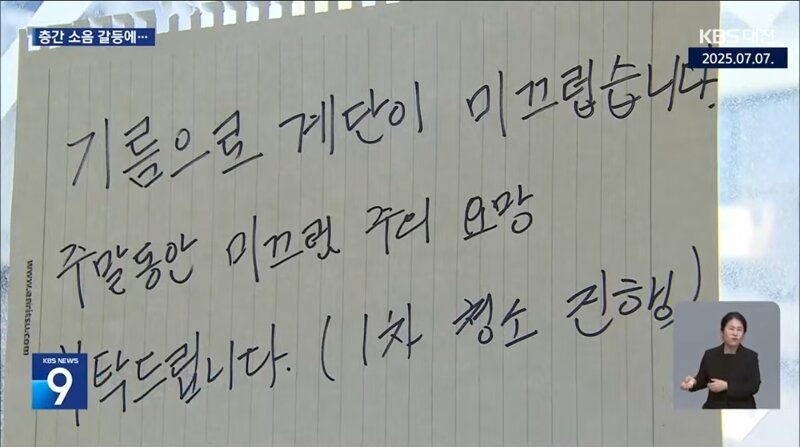 층간 소음 갈등에…
KBS 대전
2025.07.07.
기름으로 계단이 미끄럽습니다.
주말동안 미끄럼 주의 요망
부탁드립니다. (1차 청소 진행)
www.anritsu.com
KBS NEWS
9